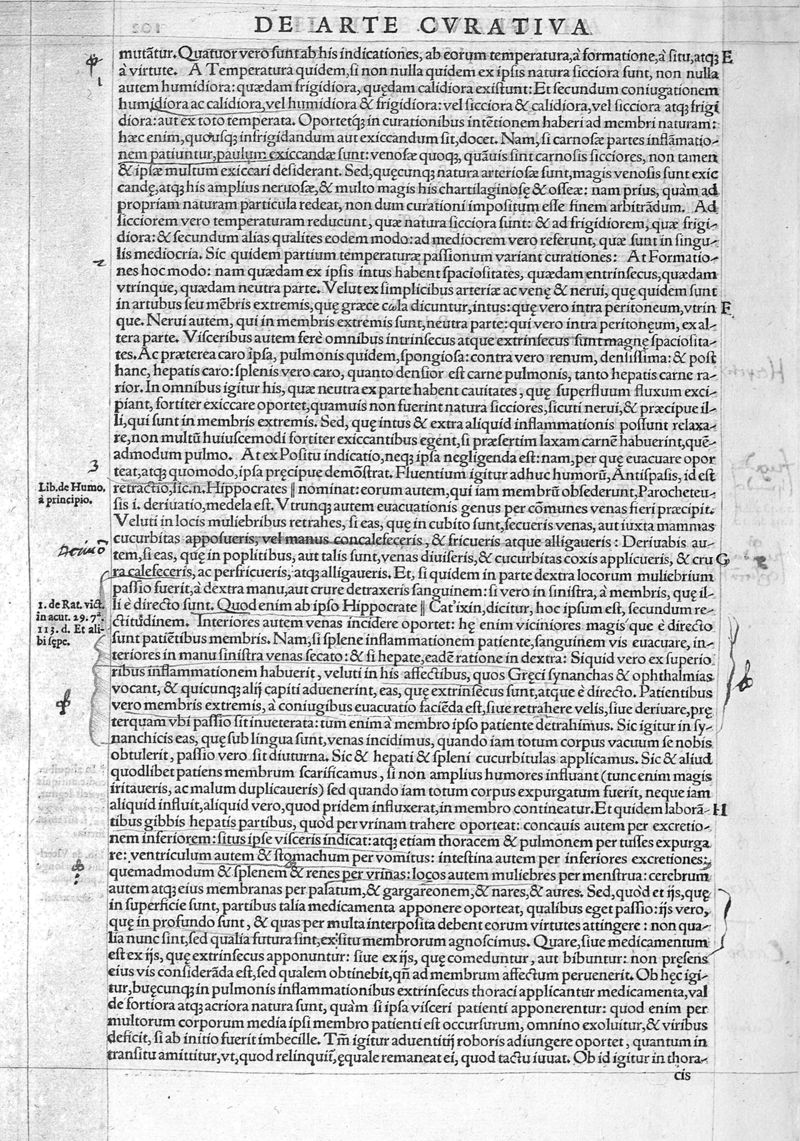 DE ARTE CVRATIVA
mutãtur. Quatuor vero sunt ab his indicationes, ab eorum temperatura, à formatione, à situ, atq; E
à virtute. A Temperatura quidem, si non nulla quidem ex ipsis natura sicciora sunt, non nulla
1
autem humidiora: quædam frigidiora, quędam calidiora existunt: Et secundum coniugationem
humidiora ac calidiora, vel humidiora & frigidiora: vel sicciora & calidiora, vel sicciora atq; frigi
diora: aut ex toto temperata. Oportetq; in curationibus intẽtionem haberi ad membri naturam:
hæc enim, quousq; infrigidandum aut exiccandum sit, docet. Nam, si carnosæ partes inflãmatio-
nem patiuntur, paulum exiccandæ sunt: venosæ quoq;, quãuis sint carnosis sicciores, non tamen
& ipsæ multum exiccari desiderant. Sed, quęcunq; natura arteriosæ sunt, magis venosis sunt exic
candę, atq; his amplius neruosæ, & multo magis his chartilaginosę & osseæ: nam prius, quàm ad
propriam naturam particula redeat, non dum curationi impositum esse finem arbitrãdum. Ad
sicciorem vero temperaturam reducunt, quæ natura sicciora sunt: & ad frigidiorem, quæ frigi-
diora: & secundum alias qualites eodem modo: ad mediocrem vero referunt, quæ sunt in singu-
lis mediocria. Sic quidem partium temperaturæ passionum variant curationes: At Formatio-
2
nes hoc modo: nam quædam ex ipsis intus habent spaciositates, quædam entrinsecus, quædam
vtrinque, quædam neutra parte. Velut ex simplicibus arteriæ ac venę & nerui, quę quidem sunt
in artubus seu mẽbris extremis, quę græce cωla dicuntur, intus: quę vero intra peritoneum, vtrin F
que. Nerui autem, qui in membris extremis sunt, neutra parte: qui vero intra peritonęum, ex al-
tera parte. Visceribus autem ferè omnibus intrinsecus atque extrinsecus sunt magnę spaciosita-
tes. Ac præterea caro ipsa, pulmonis quidem, spongiosa: contra vero renum, densissima: & post
hanc, hepatis caro: splenis vero caro, quanto densior est carne pulmonis, tanto hepatis carne ra-
rior. In omnibus igitur his, quæ neutra ex parte habent cauitates, quę superfluum fluxum exci-
piant, fortiter exiccare oportet, quamuis non fuerint natura sicciores, sicuti nerui, & præcipue il-
li, qui sunt in membris extremis. Sed, quę intus & extra aliquid inflammationis possunt relaxa-
re, non multũ huiuscemodi fortiter exiccantibus egent, si præsertim laxam carnẽ habuerint, quẽ-
admodum pulmo. At ex Positu indicatio, neq; ipsa negligenda est: nam, per quę euacuare opor
3
teat, atq; quomodo, ipsa pręcipue demõstrat. Fluentium igitur adhuc humorũ, Antispasis, id est
Lib. de Humo.
à principio.
retractio, sic .n. Hippocrates ‖ nominat: eorum autem, qui iam membrũ obsederunt, Parocheteu-
sis i. deriuatio, medela est. Vtrunq; autem euacuationis genus per cõmunes venas fieri præcipit.
Veluti in locis muliebribus retrahes, si eas, quę in cubito sunt, secueris venas, aut iuxta mammas
cucurbitas apposueris, vel manus concalefeceris, & fricueris atque alligaueris: Deriuabis au-
tem, si eas, quę in poplitibus, aut talis sunt, venas diuiseris, & cucurbitas coxis applicueris, & cru G
ra calefeceris, ac perfricueris, atq; alligaueris. Et, si quidem in parte dextra locorum muliebrium
passio fuerit, à dextra manu, aut crure detraxeris sanguinem: si vero in sinistra, à membris, quę il-
1. de Rat. vict.
in acut. 29. 7ª.
113. d. Et ali-
bi sępe.
li è directo sunt. Quod enim ab ipso Hippocrate ‖ Cat'ixin, dicitur, hoc ipsum est, secundum re-
ctitudinem. Interiores autem venas incidere oportet: hę enim viciniores magis que è directo
sunt patiẽtibus membris. Nam, si splene inflammationem patiente, sanguinem vis euacuare, in-
teriores in manu sinistra venas secato: & si hepate, eadẽ ratione in dextra: Siquid vero ex superio
ribus inflammationem habuerit, veluti in his affectibus, quos Gręci synanchas & ophthalmias
vocant, & quicunq; alij capiti aduenerint, eas, que extrinsecus sunt, atque è directo. Patientibus
vero membris extremis, à coniugibus euacuatio faciẽda est, siue retrahere velis, siue deriuare, prę
terquam vbi passio sit inueterata: tum enim à membro ipso patiente detrahimus. Sic igitur in sy-
nanchicis eas, quę sub lingua sunt, venas incidimus, quando iam totum corpus vacuum se nobis
obtulerit, passio vero sit diuturna. Sic & hepati & spleni cucurbitulas applicamus. Sic & aliud
quodlibet patiens membrum scarificamus, si non amplius humores influant (tunc enim magis
iritaueris, ac malum duplicaueris) sed quando iam totum corpus expurgatum fuerit, neque iam
aliquid influit, aliquid vero, quod pridem influxerat, in membro contineatur. Et quidem laborã- H
tibus gibbis hepatis partibus, quòd per vrinam trahere oporteat: concauis autem per excretio-
nem inferiorem: situs ipse visceris indicat: atq; etiam thoracem & pulmonem per tusses expurga
re: ventriculum autem & stomachum per vomitus: intestina autem per inferiores excretiones:
quemadmodum & splenem & renes per vrinas: locos autem muliebres per menstrua: cerebrum
autem atq; eius membranas per palatum, & gargareonem, & nares, & aures. Sed, quòd et ijs, quę
in superficie sunt, partibus talia medicamenta apponere oporteat, qualibus eget passio: ijs vero,
quę in profundo sunt, & quas per multa interposita debent eorum virtutes attingere: non qua-
lia nunc sint, sed qualia futura sint, ex situ membrorum agnoscimus. Quare, siue medicamentum
est ex ijs, quę extrinsecus apponuntur: siue ex ijs, quę comeduntur, aut bibuntur: non pręsens
eius vis considerãda est, sed qualem obtinebit, qñ ad membrum affectum peruenerit. Ob hęc igi-
tur, quęcunq; in pulmonis inflammationibus extrinsecus thoraci applicantur medicamenta, val
de fortiora atq; acriora natura sunt, quàm si ipsa visceri patienti apponerentur: quod enim per
multorum corporum media ipsi membro patienti est occursurum, omnino exoluitur, & viribus
deficit, si ab initio fuerit imbecille. Tm̃ igitur aduentitij roboris adiungere oportet, quantum in
transitu amittitur, vt, quod relinquit̃, ęquale remaneat ei, quod tactu iuuat. Ob id igitur in thora-
cis